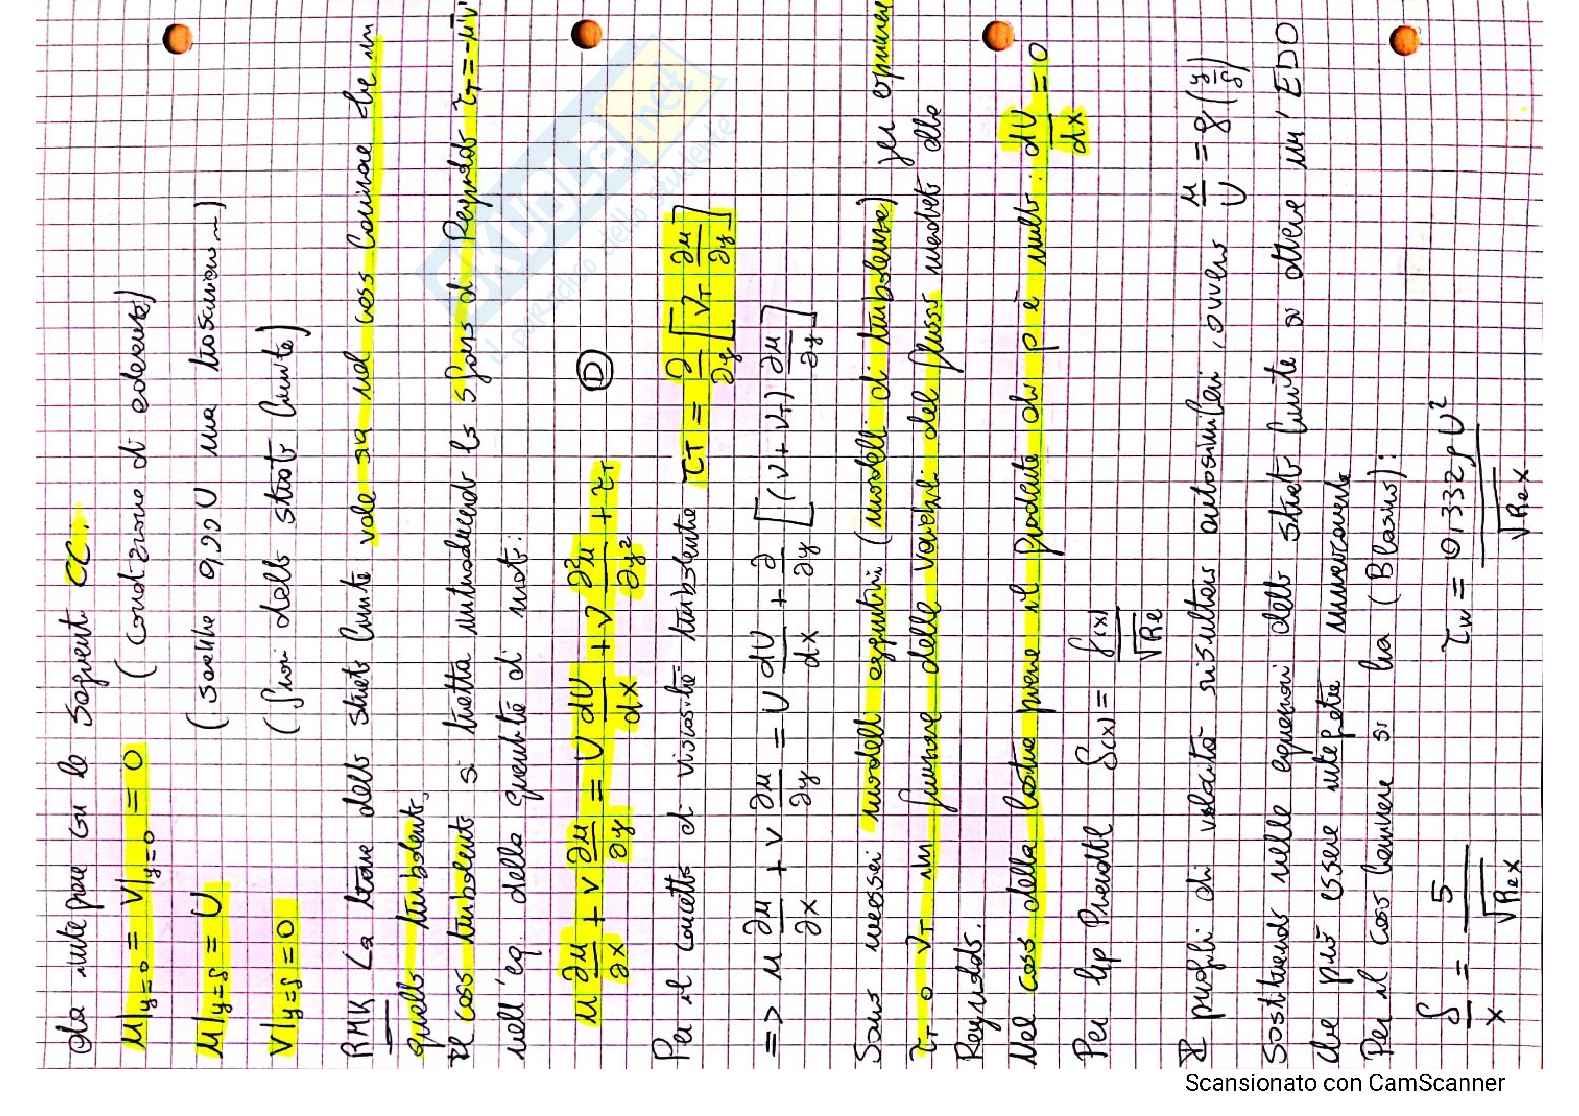 da integrare con le seguenti CC.
u|y=0 = v|y=0 = 0 (condizione di aderenza)
u|y=δ = U (sarebbe 0,99U ma trascuriamo~)
v|y=δ=0 (fuori dello strato limite)
RMK La teoria dello strato limite vale sia nel caso laminare che in
quello turbolento.
Il caso turbolento si tratta introducendo lo sforzo di Reynolds τT=-u'v'
nell'eq. della quantità di moto:
u ∂u/∂x + v ∂u/∂y = U dU/dx + ν ∂²u/∂y² + τT (D)
Per il concetto di viscosità turbolenta τT = ∂/∂y [νT ∂u/∂y]
=> u ∂u/∂x + v ∂u/∂y = U dU/dx + ∂/∂y [(ν+νT) ∂u/∂y]
Sono necessari modelli aggiuntivi (modelli di turbolenza) per esprimere
τT o νT in funzione delle variabili del flusso mediato alla
Reynolds.
Nel caso della lastra piana il gradiente di p è nullo: dU/dx = 0
Per hp Prandtl δ(x) = f(x)/√Re
I profili di velocità risultano autosimilari, ovvero u/U = g(y/δ)
Sostituendo nelle equazioni dello strato limite si ottiene un'EDO
che può essere integrata numericamente
Per il caso laminare si ha (Blasius):
δ/x = 5/√Rex τw = 0,332ρU²/√Rex
SKUOLA.net
il paradiso dello studente
Scansionato con CamScanner